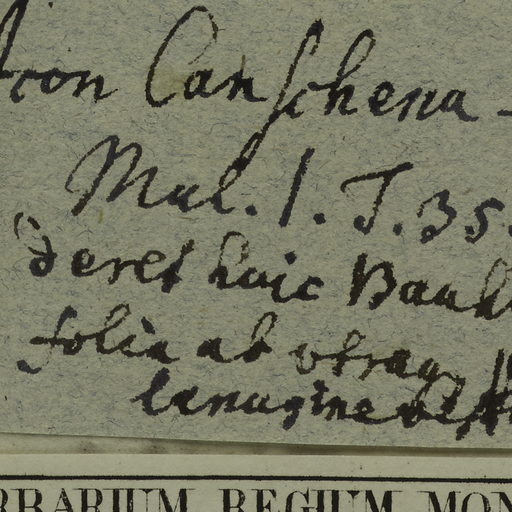 Icon Canschena -
Mul. 1. T. 35.
deret huic Bauh
folia ab utraq
lanugine
RBARIUM REGIUM MON